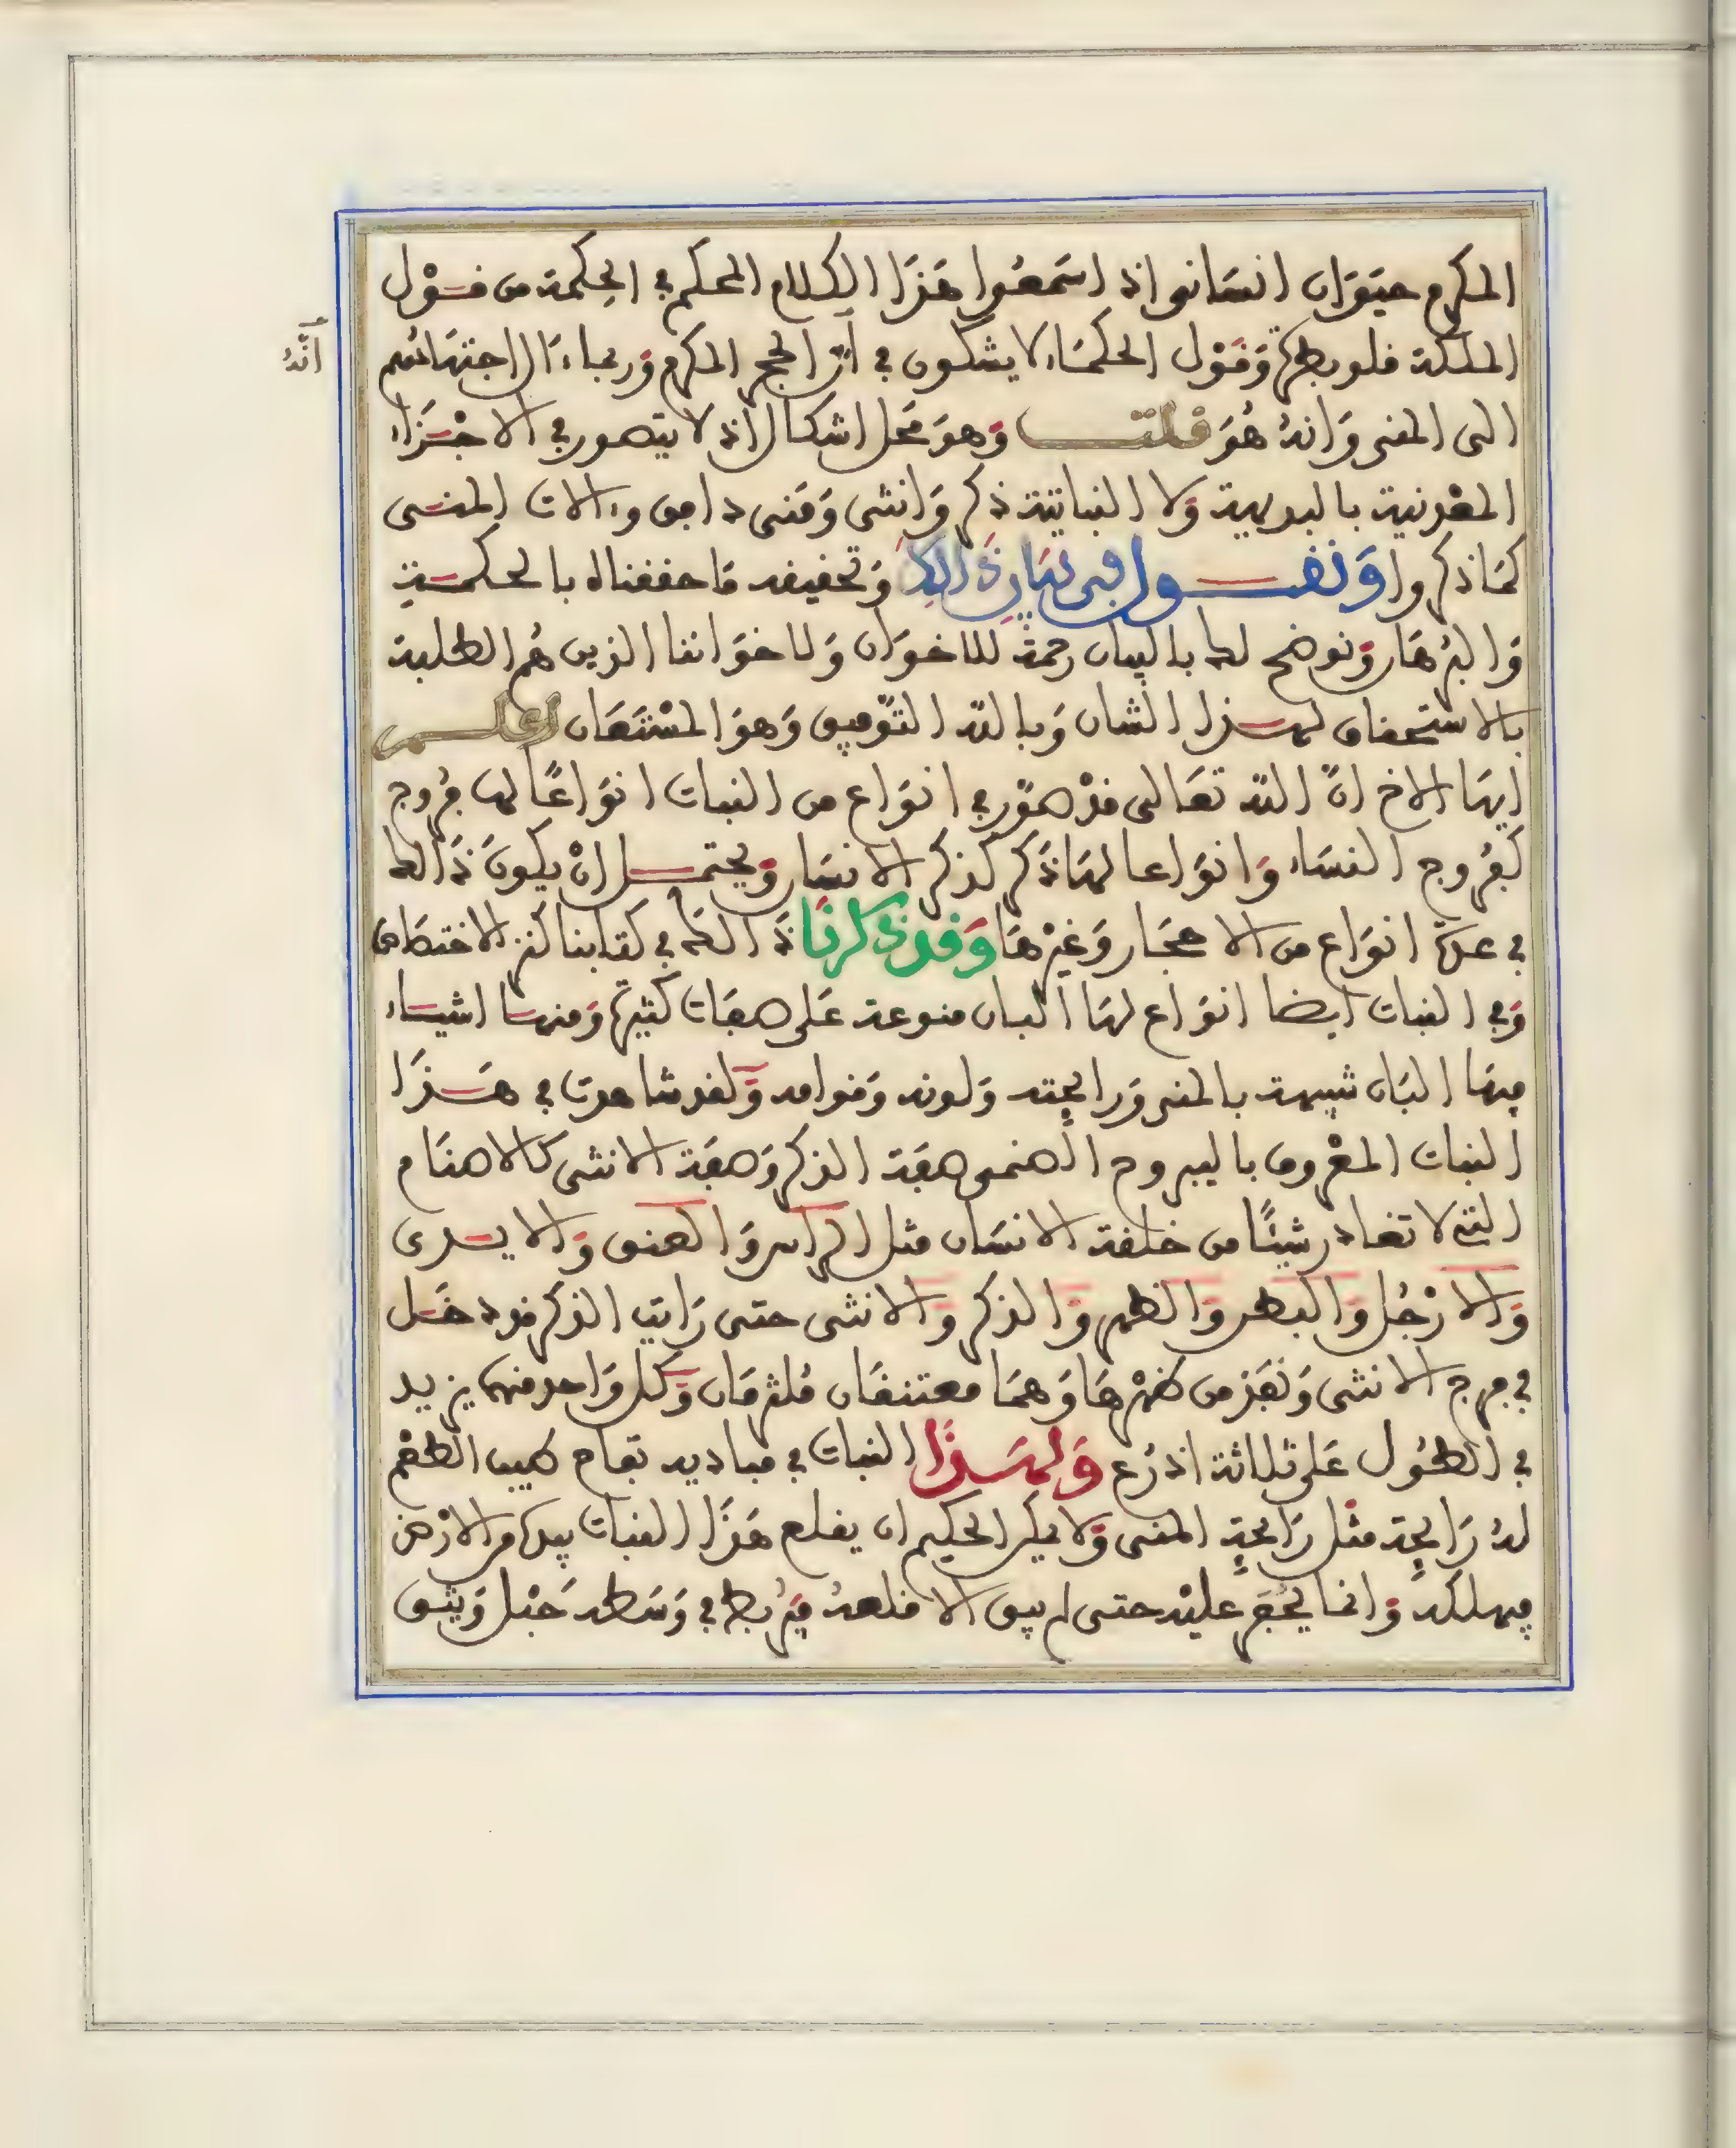 المكرم حيوان انسانى اذ اسمعوا هذا الكلام المحكم في الحكمة من قول
الملكة قلوبطرة وقول الحكماء لا يشكون في ان الحجر المكرم وربما ءال اجتهادهم
انه
الى المنى وانه هو قلت وهو محل اشكال اذ لا يتصور في الاجزاء
المعدنية بالبديهية ولا النباتية ذكر وانثى ومنى دافق وءالات المنى
كما ذكروا ونقول في بيان ذالك وتحقيقه ما حققناه بالحكمة
والبرهان ونوضح لك بالبيان رحمة للاخوان ولاخواننا الذين هم الطلبة
بالاستحقاق لهذا الشان وبالله التوفيق وهو المستعان اعلم
ايها الاخ ان الله تعالى قد صور في انواع من النبات انواعا لها فروج
كفروج النساء وانواعا لها ذكر كذكر الانسان ويحتمل ان يكون ذالك
في عدة انواع من الاحجار وغيرها وقد ذكرنا ذالك في كتابنا كنز الاختصاص
وفي النبات ايضا انواع لها البان منوعة على صفات كثيرة ومنها اشياء
فيها البان شبيهة بالمنى ورايحته ولونه وقوامه ولقد شاهدت في هذا
النبات المعروف باليبروح الصنمى صفة الذكر وصفة الانثى كالاصنام
التي لا تغادر شيئا من خلقة الانسان مثل الراس والعنق والايدى
والارجل والبطن والظهر والذكر والانثى حتى رايت الذكر قد دخل
في فرج الانثى ونفذ من ظهرها وهما معتنقان ملتزمان وكل واحد منهما يزيد
في الطول على ثلاثة اذرع ولهذا النبات في مباديه تفاح طيب الطعم
له رايحة مثل رايحة المنى ولا يمكن الحكيم ان يقلع هذا النبات بيده من الارض
فيهلكه وانما يحفر عليه حتى لم يبق الا قلعه فيربط في وسطه حبل ويثق